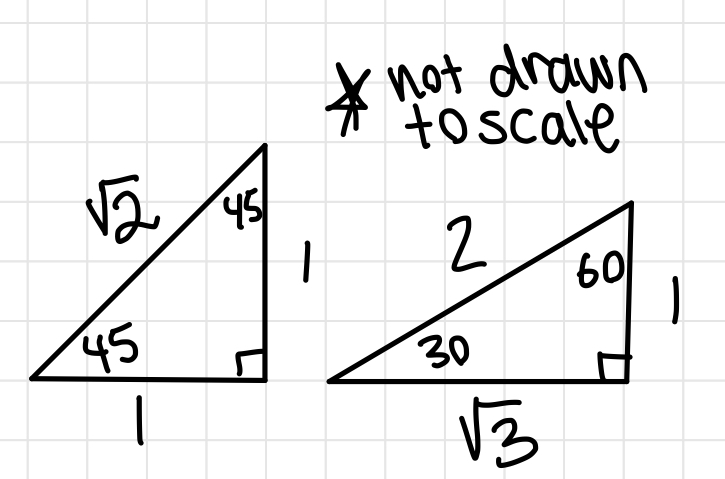 * not drawn
to scale
√2
45
1
45
1
2
60
1
30
√3